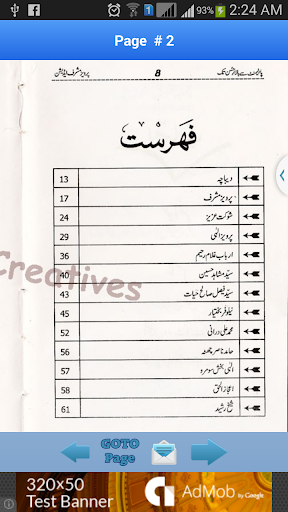 93% 2:24 AM
Page # 2
پارلیمنٹ سے بازار حسن تک 8 پرویز مشرف ایڈیشن
فہرست
دیباچہ 13
پرویز مشرف 17
شوکت عزیز 24
پرویز الٰہی 29
ارباب غلام رحیم 36
سید مشاہد حسین 40
سید فیصل صالح حیات 43
نیلوفر بختیار 45
محمد علی درانی 52
حامد ناصر چٹھہ 56
الٰہی بخش سومرو 57
اعجاز الحق 58
شیخ رشید 61
Creatives
GOTO
Page
320x50
Test Banner
AdMob by Google